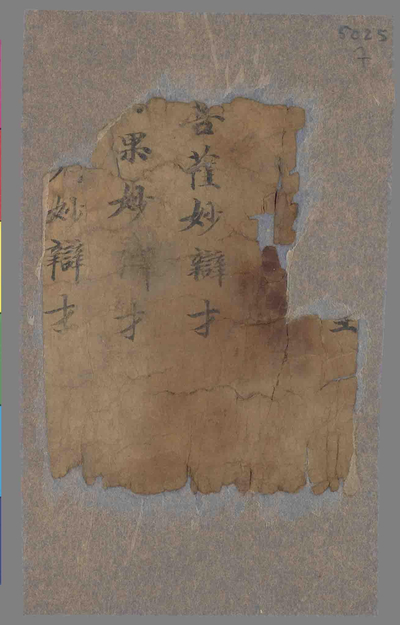 5025
7
菩薩妙辯才
果妙辯才
妙辯才